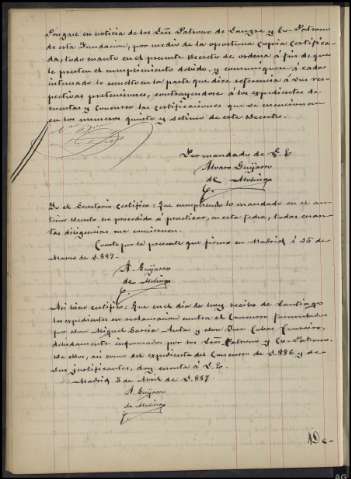 Póngase en noticia de los Sres Patrono de Sangre y Co-Patrono
de esta Fundacion, por medio de la oportuna Copia Certifica-
da, todo cuanto en el presente Decreto se ordena á fin de que
le presten el cumplimiento debido, y comuníquese á cada
interesado lo resuelto en la parte que dice referencia á sus res-
pectivas pretensiones, uniéndose á los expedientes de
cuentas y Concurso las certificaciones que se mencionan
en los numeros quinto y sétimo de este decreto.
Por mandado de S. E.
Alvaro Guijarro
de
Yo el Secretario certifico: Que cumpliendo lo mandado en el an-
terior decreto he procedido á practicar, en esta fecha, todas cuan-
tas diligencias me conciernen.
Conste por la presente que firmo en Madrid á 26 de
Marzo de 1.887.
A. Guijarro
de
Asi mismo certifico: Que en el dia de hoy recibo de Santiago
los expedientes en reclamacion contra el Concurso promovidos
por don Miguel García y don Juan
debidamente informados por los Sres Patrono y Co-Patrono.
De ellos, asi como del expediente del Concurso de 1.886 y de
sus justificantes, doy cuenta á S. E.
Madrid 3 de Abril de 1.887.
A. Guijarro
de